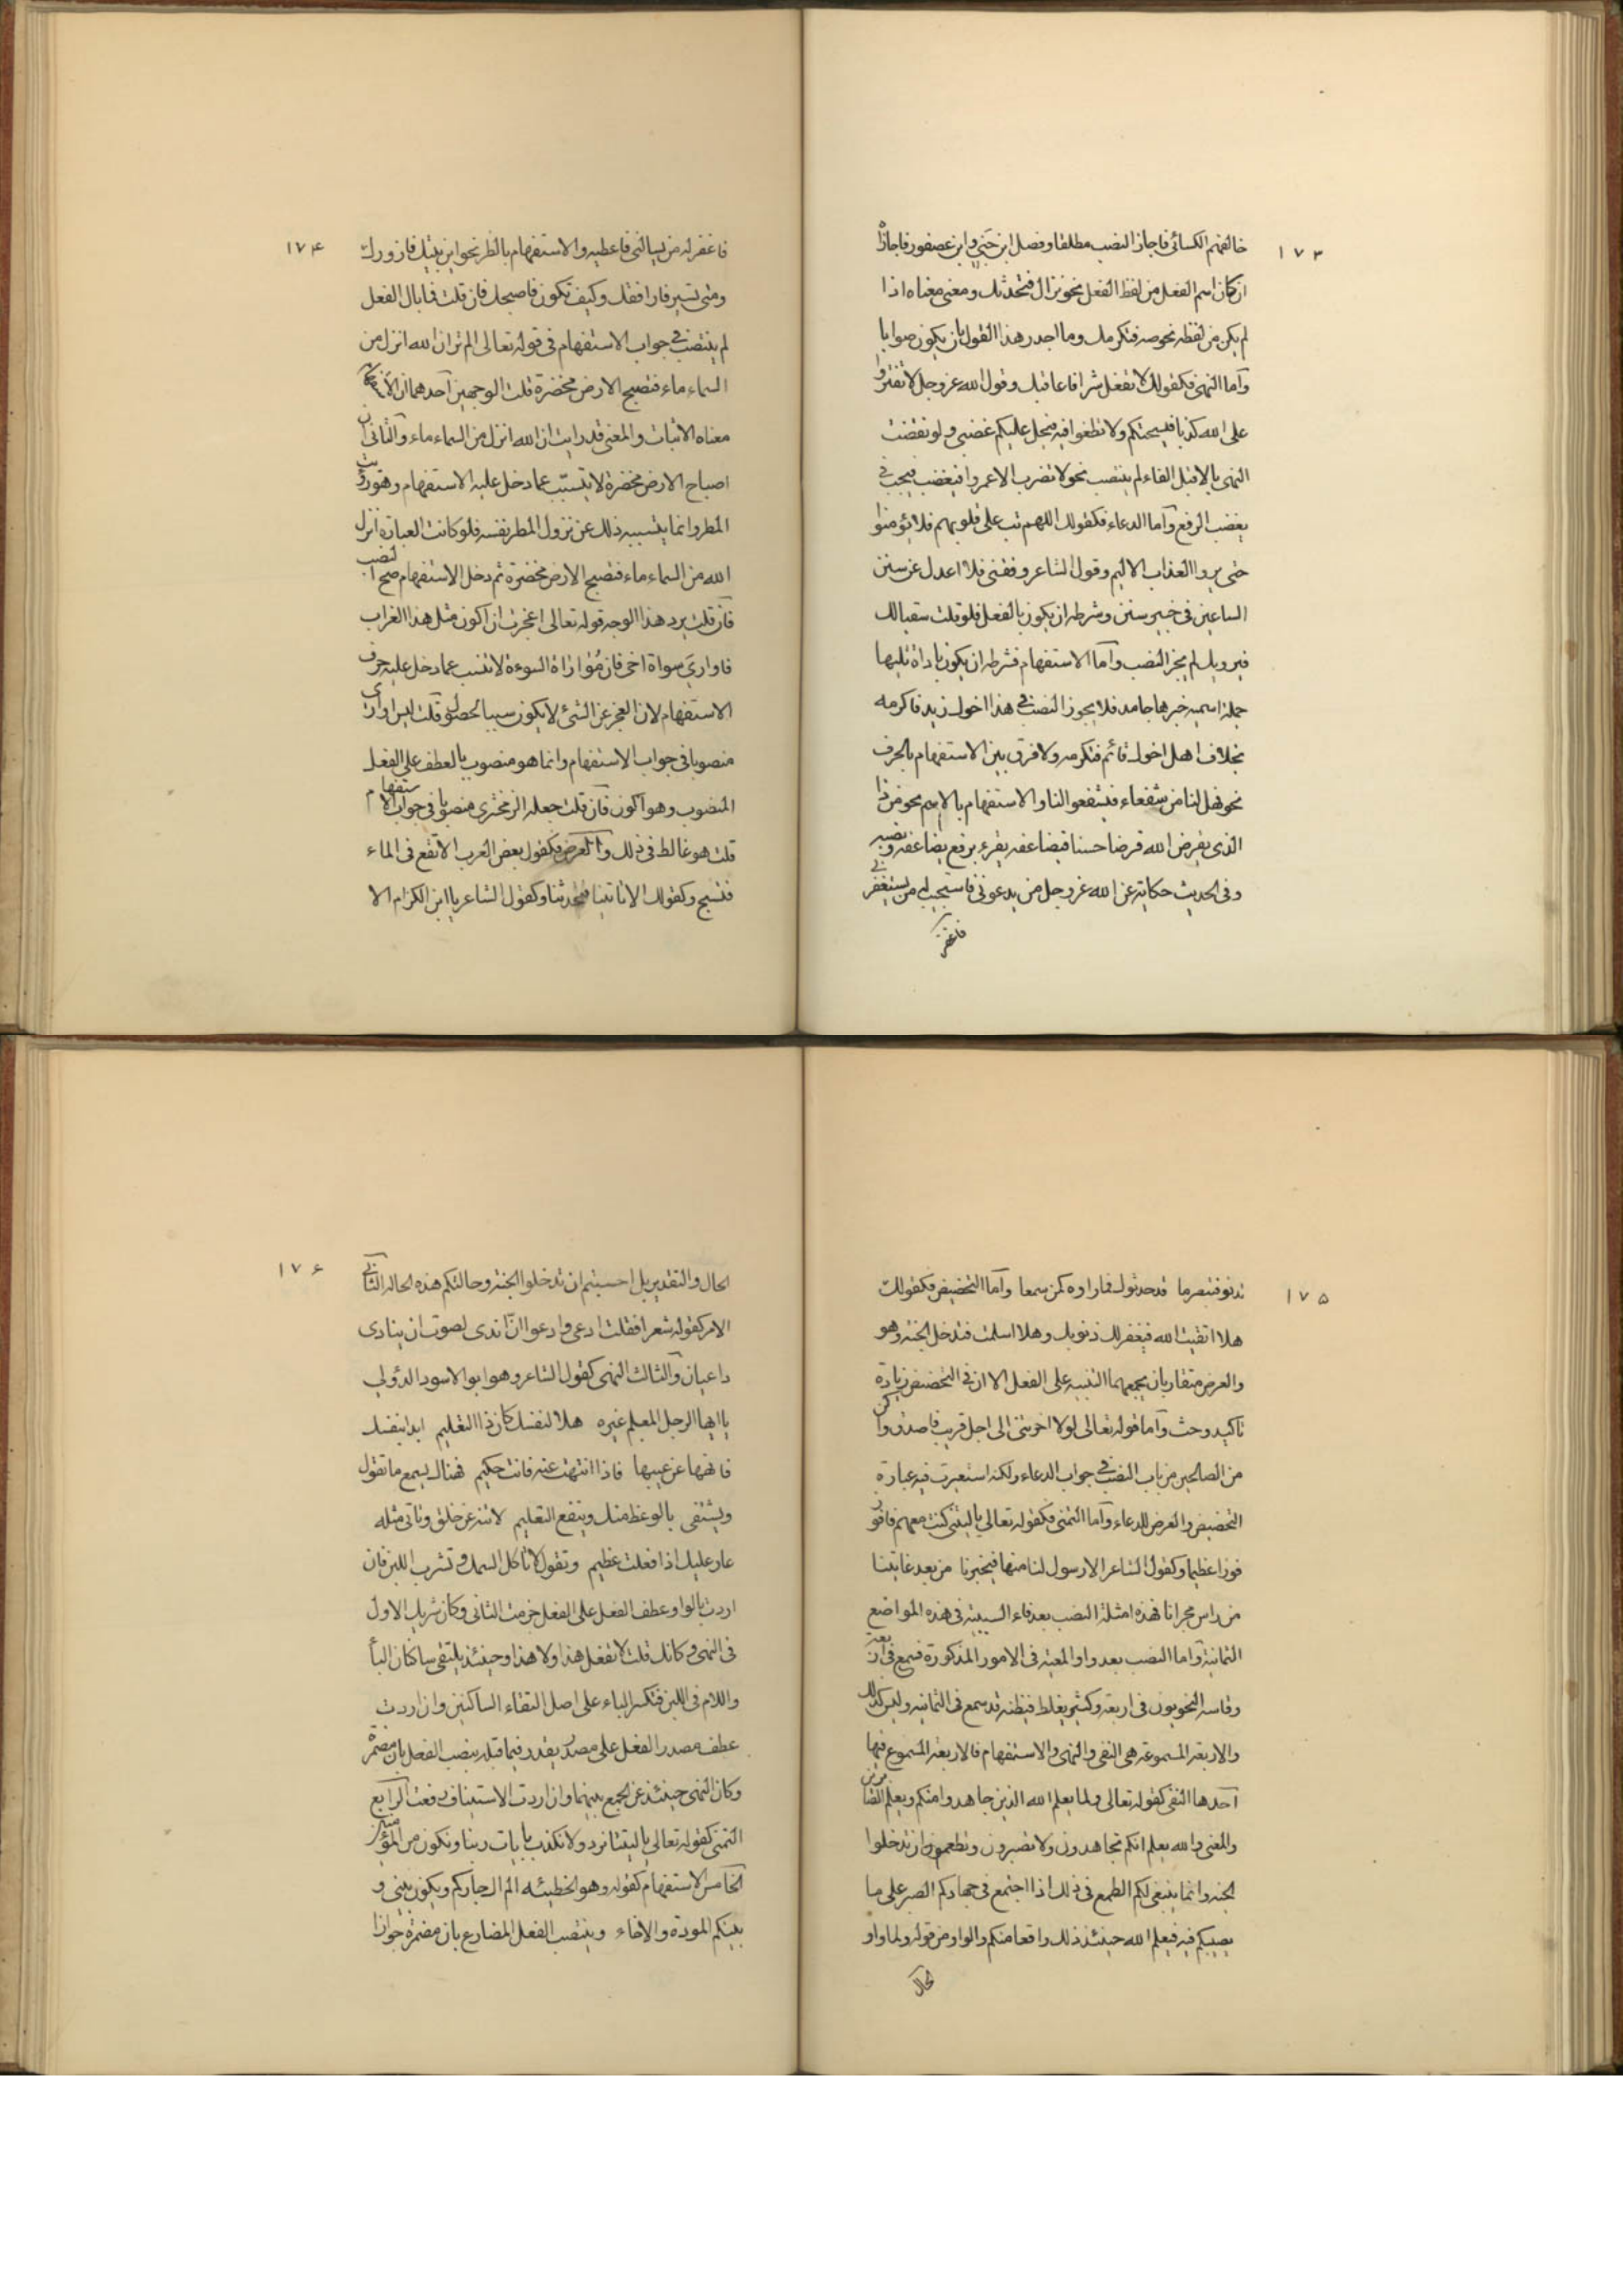 ١٧٣
خالفهم الكسائي فاجاز النصب مطلقا وفصل ابن جني وابن عصفور فاجازاه
ان كان اسم الفعل من لفظ الفعل نحو نزال فنحدثك ومعنى معناه اذا
لم يكن من لفظه نحو صه فنكرمك وما اجدر هذا القول بان يكون صوابا
وآما النهى فكقولك لا تفعل شرا فاعاقبك وقول الله عز وجل لا تفتروا
على الله كذبا فيسحتكم ولا تطغوا فيه فيحل عليكم غضبي ولو نقضت
النهى بالا قبل الفاء لم ينتصب نحو لا تضرب الا عمروا فيغضب فيجب في
يغضب الرفع وآما الدعاء فكقولك اللهم تب على قلوبهم فلا يؤمنوا
حتى يروا العذاب الاليم وقول الشاعر وفقنى فلا اعدل عن سنن
الساعين فى خير سنن وشرطه ان يكون بالفعل فلو قلت سقيا لك
فيرويك لم يجز النصب وآما الاستفهام فشرطه ان يكون باداة تليها
جملة اسمية خبرها جامد فلا يجوز النصب في هذا اخوك زيد فاكرمه
بخلاف هل اخوك قائم فنكرمه ولا فرق بين الاستفهام بالحرف
نحو فهل لنا من شفعاء فيشفعوا لنا والاستفهام بالاسم نحو من ذا
الذى يقرض الله قرضا حسنا فيضاعفه يقرء برفع يضاعفه ونصبه
وفى الحديث حكاية عن الله عز وجل من يدعونى فاستجيب له من يستغفرني
فاغفر
١٧۴
فاغفر له من يسالنى فاعطيه والاستفهام بالظرف نحو اين بيتك فازورك
ومتى تسير فارافقك وكيف تكون فاصحبك فان قلت فما بال الفعل
لم ينتصب في جواب الاستفهام فى قوله تعالى الم تر ان الله انزل من
السماء ماء فتصبح الارض مخضرة قلت لوجهين آحدهما ان الاستفهام
معناه الاثبات والمعنى قد رايت ان الله انزل من السماء ماء وآلثانى ان
اصباح الارض مخضرة لا يتسبّب عما دخل عليه الاستفهام وهو رؤية
المطر وانما يتسبب ذلك عن نزول المطر نفسه فلو كانت العبارة انزل
الله من السماء ماء فتصبح الارض مخضرة ثم دخل الاستفهام صح النصب
فآن قلت يرد هذا الوجه قوله تعالى اعجزت ان اكون مثل هذا الغراب
فاواري سواة اخى فان مُوٰاراة السوءة لا تتسبب عما دخل عليه حرف
الاستفهام لان العجز عن الشئ لا يكون سببا لحصوله قلت ليس اوارى
منصوبا فى جواب الاستفهام وانما هو منصوب بالعطف على الفعل
المنصوب وهو اكون فآن قلت جعله الزمخشرى منصوبا فى جواب الاستفهام
قلت هو غالط فى ذلك وآما العرض فكقول بعض العرب الا تقع فى الماء
فتسبح وكقولك الا تاتينا فتحدثنا وكقول الشاعر يا ابن الكرام الا
١٧۵
تدنو فتبصر ما قد حدثوك فما راء كمن سمعا وآما التحضيض فكقولك
هلا اتقيت الله فيغفر لك ذنوبك وهلا اسلمت فتدخل الجنة وهو
والعرض متقاربان يجمعهما التنبيه على الفعل الا ان فى التحضيض زيادة
تاكيد وحث وآما قوله تعالى لولا اخرتنى الى اجل قريب فاصدق واكن
من الصالحين من باب النصب في جواب الدعاء ولكنه استعيرت فيه عبارة
التحضيض والعرض للدعاء وآما التمنى فكقوله تعالى يا ليتنى كنت معهم فافوز
فوزا عظيما وكقول الشاعر الا رسول لنا منها فيخبرنا من بعد غايتنا
من راس مجرانا فهذه امثلة النصب بعد فاء السببية فى هذه المواضع
الثمانية وآما النصب بعد واو المعية فى الامور المذكورة فسمع فى اربعة
وقاسه النحويون فى اربعة وكثير يغلط فيظنه قد سمع فى الثمانية وليس كذلك
والاربعة المسموعة هى النفى والنهى والاستفهام فالاربعة المسموع فيها
آحدها النفى كقوله تعالى ولما يعلم الله الذين جاهدوا منكم ويعلم الصابرين
والمعنى والله يعلم انكم تجاهدون ولا تصبرون وتطمعون ان تدخلوا
الجنة وانما ينبغى لكم الطمع فى ذلك اذا اجتمع فى جهادكم الصبر على ما
يصيبكم فيه فيعلم الله حينئذ ذلك واقعا منكم والواو من قوله ولما واو
الحال
١٧۶
الحال والتقدير بل احسبتم ان تدخلوا الجنة وحالتكم هذه الحالة الثانى
الامر كقوله شعر فقلت ادعى وادعوا انّ اندى لصوت ان ينادى
داعيان وآلثالث النهى كقول الشاعر وهو ابو الاسود الدؤلي
يا ايها الرجل المعلم غيره هلا لنفسك كان ذا التعليم ابدا بنفسك
فانهها عن غيها فاذا انتهت عنه فانت حكيم فهناك يسمع ما تقول
ويشتفى بالوعظ منك وينفع التعليم لا تنه عن خلق وتاتى مثله
عار عليك اذا فعلت عظيم وتقول لا تاكل السمك وتشرب اللبن فان
اردت بالواو عطف الفعل على الفعل جزمت الثانى وكان شريك الاول
فى النهى وكانك قلت لا تفعل هذا ولا هذا وحينئذ يلتقى ساكنان الباء
واللام فى اللبن فتكسر الباء على اصل التقاء الساكنين وان اردت
عطف مصدر الفعل على مصدر يقدر فيما قبله ينصب الفعل بان مضمرة
وكان النهى حينئذ عن الجمع بينهما وان اردت الاستيناف رفعت الرابع
التمنى كقوله تعالى يا ليتنا نرد ولا نكذب بايات ربنا ونكون من المؤمنين
الخامس الاستفهام كقوله وهو الخطيئه الم اك جاركم ويكون بينى و
بينكم المودة والاخاء وينتصب الفعل المضارع بان مضمرة جوازا